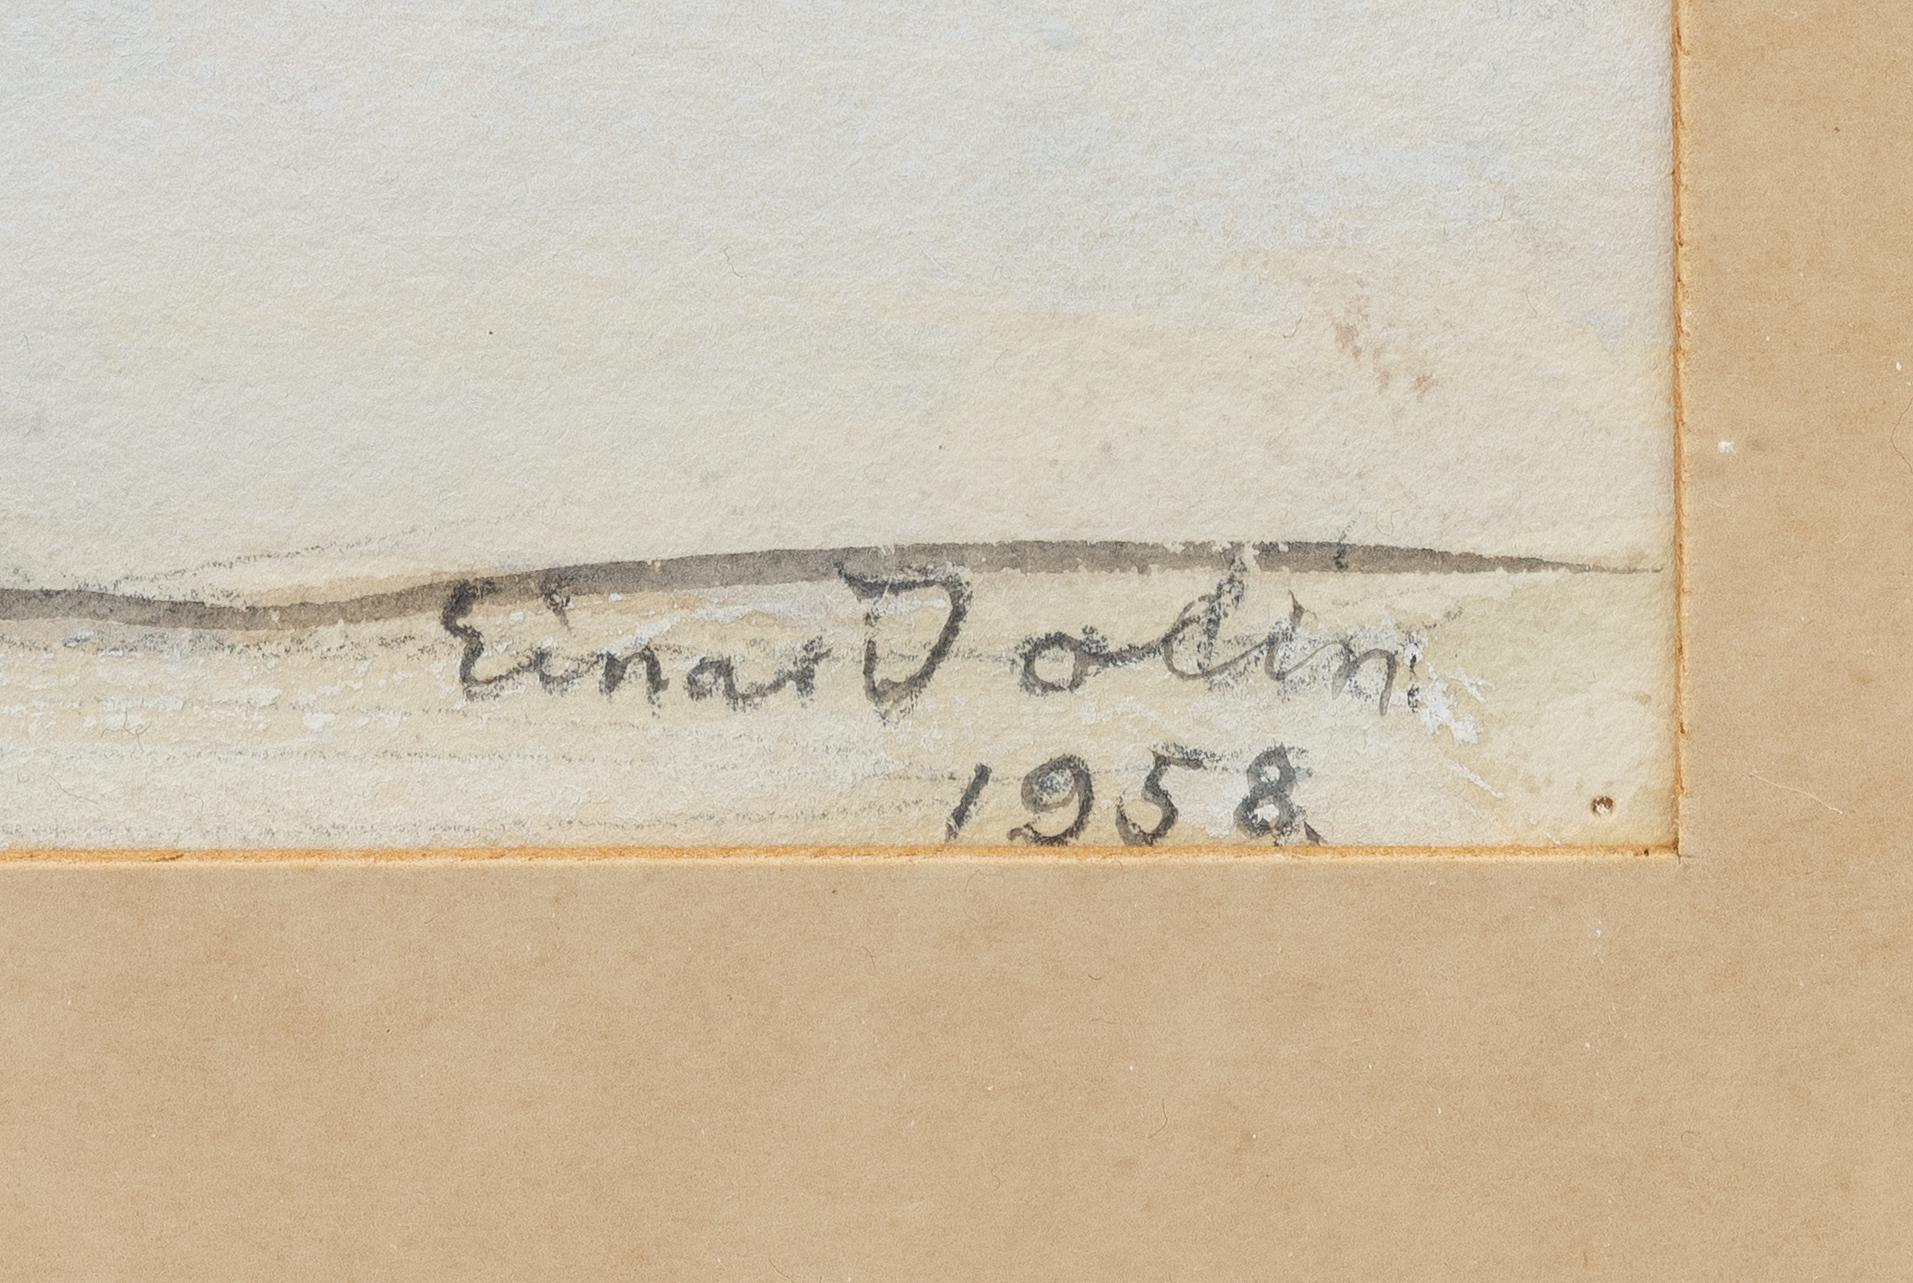 Einar Jolin
1958